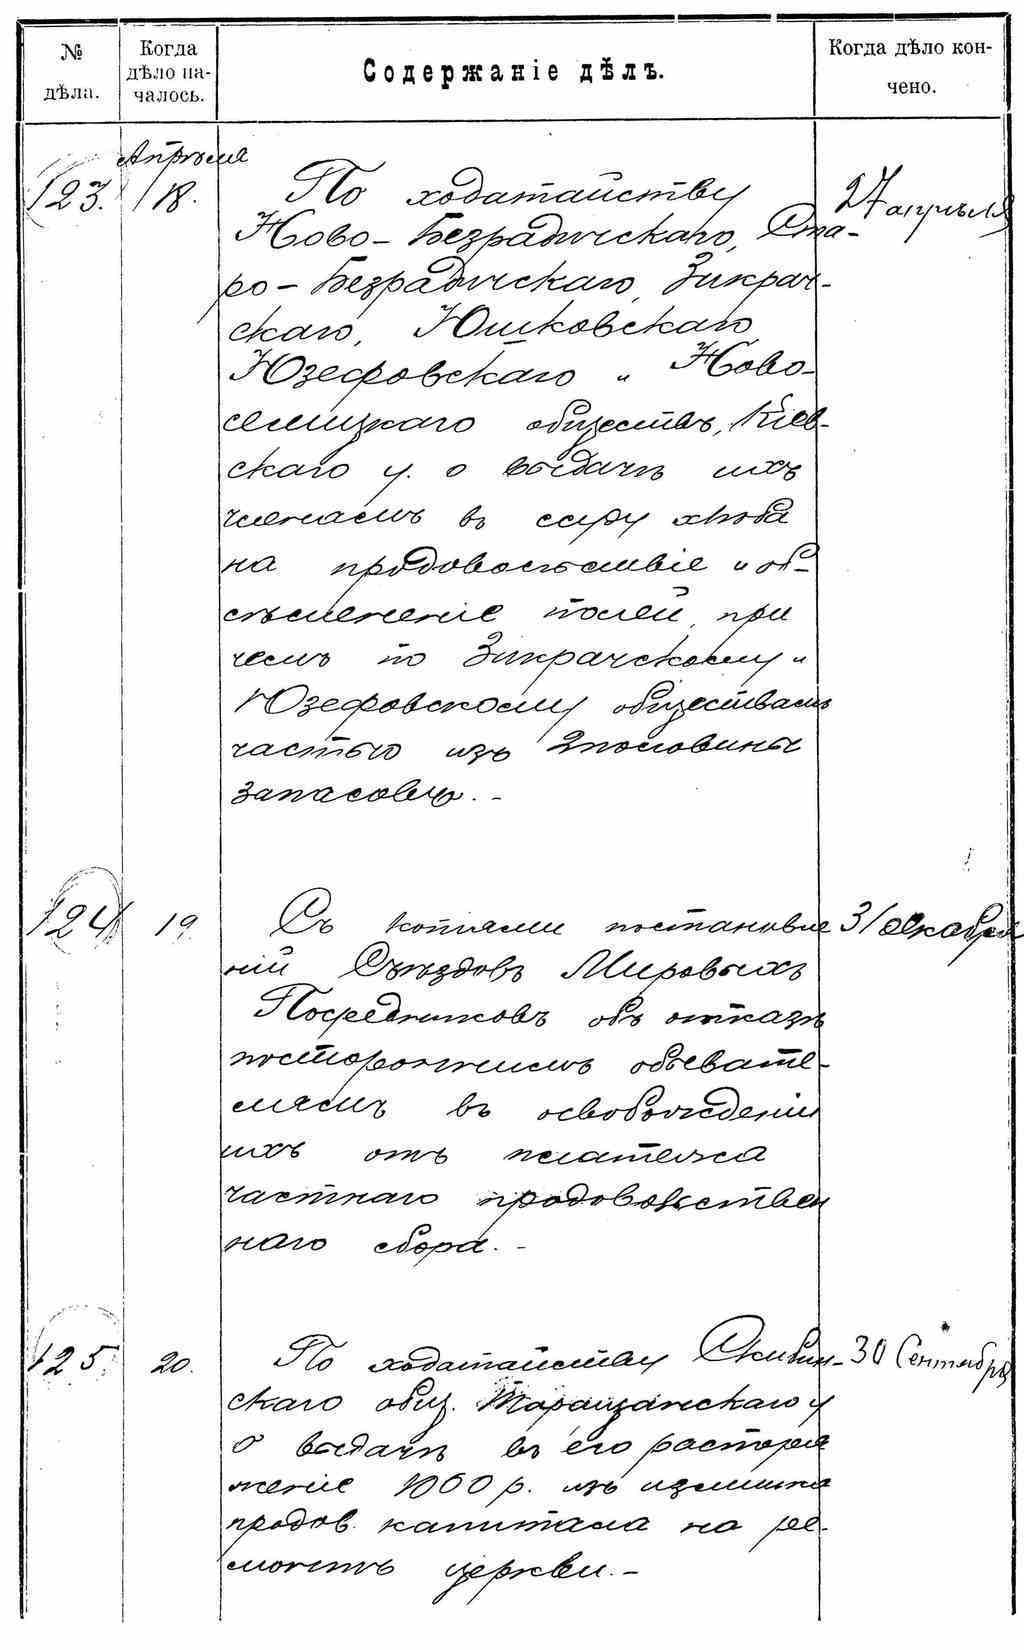 № дѣла.
Когда дѣло на-чалось.
Содержаніе дѣлъ.
Когда дѣло кон-чено.
Апрѣля
123. 18. По ходатайству 27 апрѣля
Ново-Безрадичскаго, Ста-
ро-Безрадичскаго, Зикрач-
скаго, Юшковскаго
Юзефовскаго и Ново-
селицкаго обществъ, Кіев-
скаго у. о выдачѣ ихъ
членамъ въ ссуду хлѣба
на продовольствіе и об-
сѣмененіе полей, при
чемъ по Зикрачскому и
Юзефовскому обществамъ
частью изъ 2 половины
запасовъ. -
124 19. Съ копіями постановле 31 декабря
ній Съѣздовъ Мировыхъ
Посредниковъ объ отказѣ
постороннимъ обывате-
лямъ въ освобожденіи
ихъ отъ платежа
частнаго продовольствен
наго сбора. -
125 20. По ходатайству Скибин- 30 Сентября
скаго общ. Таращанскаго у
о выдачѣ въ его распоря
женіе 1000 р. изъ излишка
продов. капитала на ре-
монтъ церкви. -